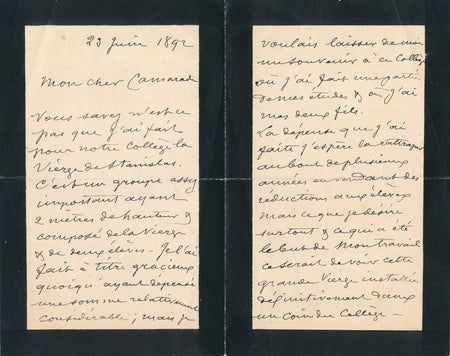 23 Juin 1892
Mon cher Camarade
Vous savez n'est ce
pas que j'ai fait
pour notre Collège la
Vierge de Stanislas.
C'est un groupe assez
important ayant
2 mètres de hauteur &
composé de la Vierge
& de deux élèves. Je l'ai
fait à titre gracieux
quoiqu'ayant dépensé
une somme relativement
considérable; mais je
voulais laisser de moi
un souvenir à ce Collège
où j'ai fait une partie
de mes études & où j'ai
mes deux fils.
La dépense que j'ai
faite j'espère la rattraper
au bout de plusieurs
années en vendant des
réductions aux élèves
mais ce que je désire
surtout & ce qui a été
le but de mon travail
ce serait de voir cette
grande Vierge installée
définitivement dans
un coin du Collège -